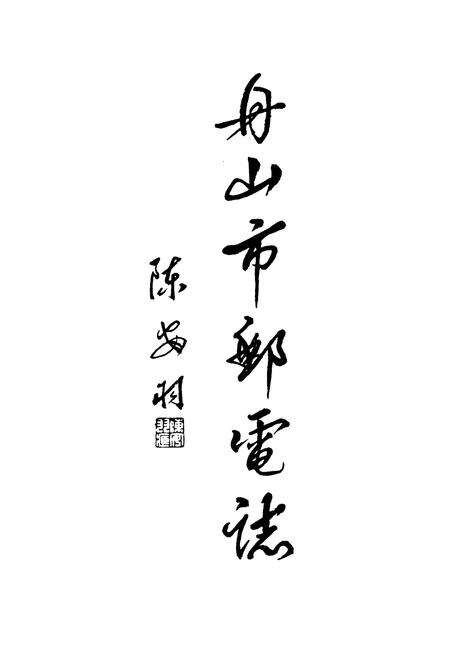 舟山市郵電誌
陈安羽